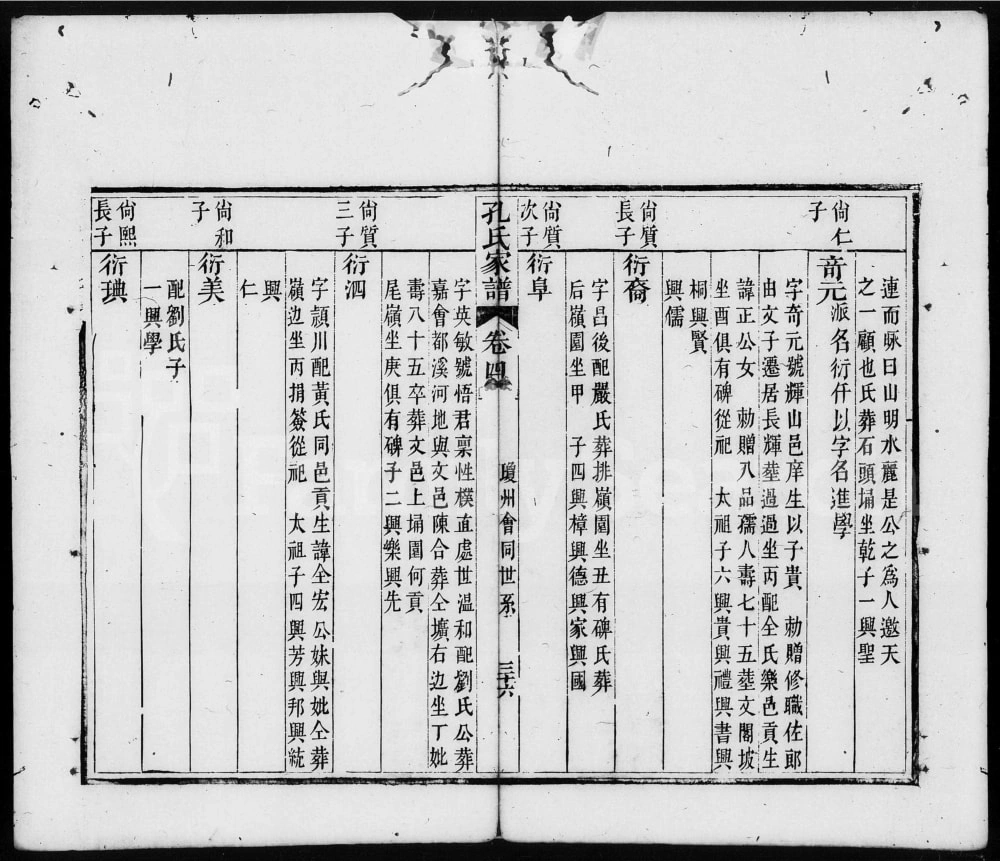 連而咏曰山明水麗是公之爲人邀天
之一顧也氏葬石頭塌坐乾子一興聖
尙仁
子
奇元派名衍仟以字名進學
字奇元號輝山邑庠生以子貴 勅贈修職佐郎
由文子遷居長輝塟過過坐丙配全氏樂邑貢生
諱正公女 勅贈八品孺人壽七十五塟文閣坡
坐酉俱有碑從祀 太祖子六興貴興禮興書興
桐興賢
興儒
尙質
長子
衍裔
字呂後配嚴氏葬排嶺園坐丑有碑氏葬
后嶺園坐甲 子四興樟興德興家興國
尙質
次子
衍阜
孔氏家譜 卷四 瓊州會同世系 三十六
字英敏號悟君稟性樸直處世溫和配劉氏公葬
嘉會都溪河地與文邑陳合葬仝壙右边坐丁妣
壽八十五卒葬文邑上塌園何貢
尾嶺坐庚俱有碑子二興樂興先
尙質
三子
衍泗
字頴川配黃氏同邑貢生諱全宏公妹與妣仝葬
嶺边坐丙捐簽從祀 太祖子四興芳興邦興統
興
仁
尙和
子
衍美
配劉氏子
一興學
尙熙
長子
衍琠